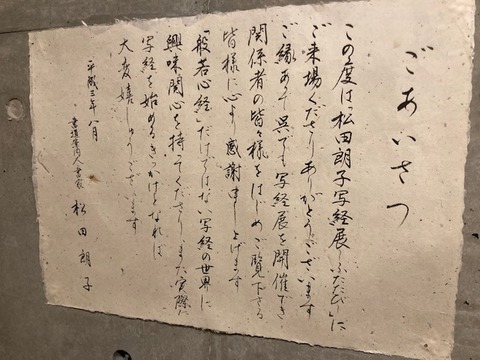 ごあいさつ
この度は「松田朗子写経展－ふたたび－」に
ご来場くださり ありがとうございます
ご縁あって呉でも写経展を開催でき
関係者の皆々様をはじめ ご覧下さる
皆様に心より感謝申し上げます
「般若心経」だけではない写経の世界に
興味関心を持ってくださり、また実際に
写経を始めるきっかけとなれば
大変嬉しゅうございます
八月
松田朗子